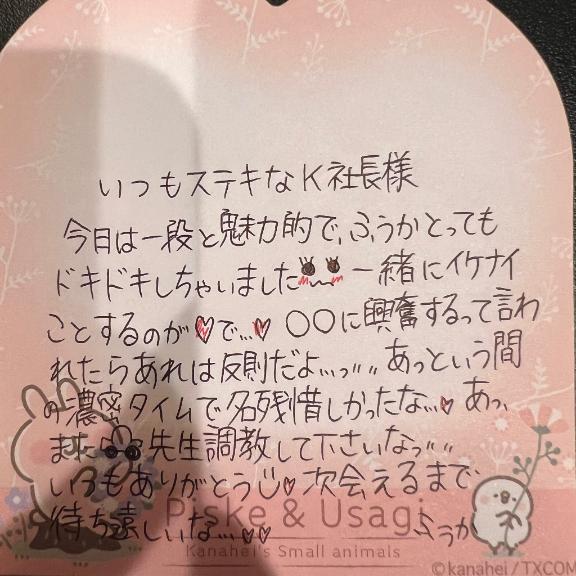 いつもステキなK社長様
今日は一段と魅力的で、ふうかとっても
ドキドキしちゃいました 一緒にイケナイ
ことするのが♡で…♡ ○○に興奮するって言わ
れたらあれは反則だよ…っ〃〃 あっという間
の濃密タイムで名残惜しかったな…♡ あっ、
また 先生調教して下さいなっ〃〃
いつもありがとう♡ 次会えるまで
待ち遠しいな…♡♡ ふうか
Piske & Usagi
Kanahei's Small animals
©kanahei / TXCOM